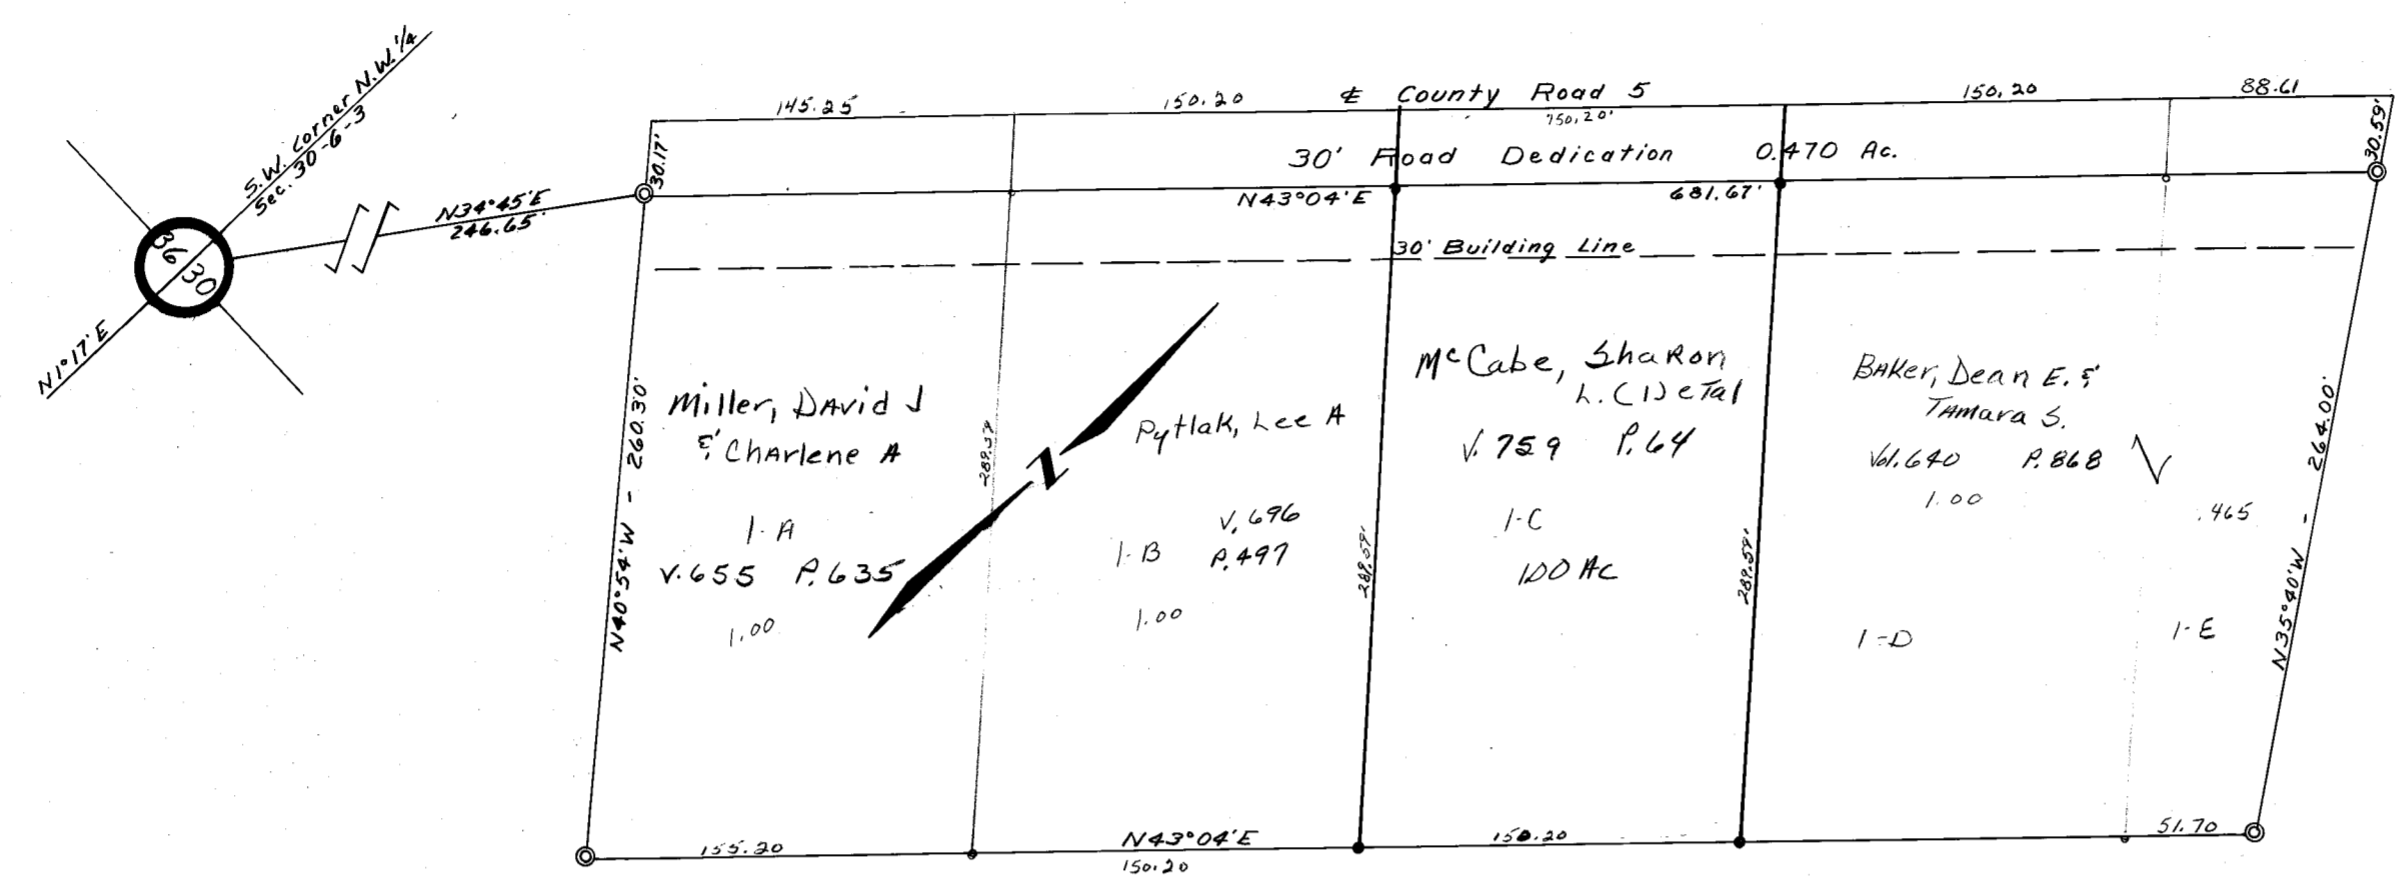 S.W. Corner N.W. 1/4
Sec. 30-6-3
36
30
N1°17'E
N34°45'E
246.65'
145.25
150.20
℄ County Road 5
150.20'
150.20
88.61
30.17'
30' Road Dedication 0.470 Ac.
30.59'
N43°04'E 681.67'
30' Building Line
N40°54'W - 260.30'
Miller, David J
& Charlene A
1-A
V.655 P.635
1.00
289.59
N
Pytlak, Lee A
V.696
1-B P.497
1.00
289.59'
McCabe, Sharon
L. (1) etal
V.759 P.64
1-C
1.00 AC
289.59'
Baker, Dean E. &
Tamara S.
Vol.640 P.868
1.00
1-D
.465
1-E
N35°40'W - 264.00'
155.20
N43°04'E
150.20
150.20
51.70